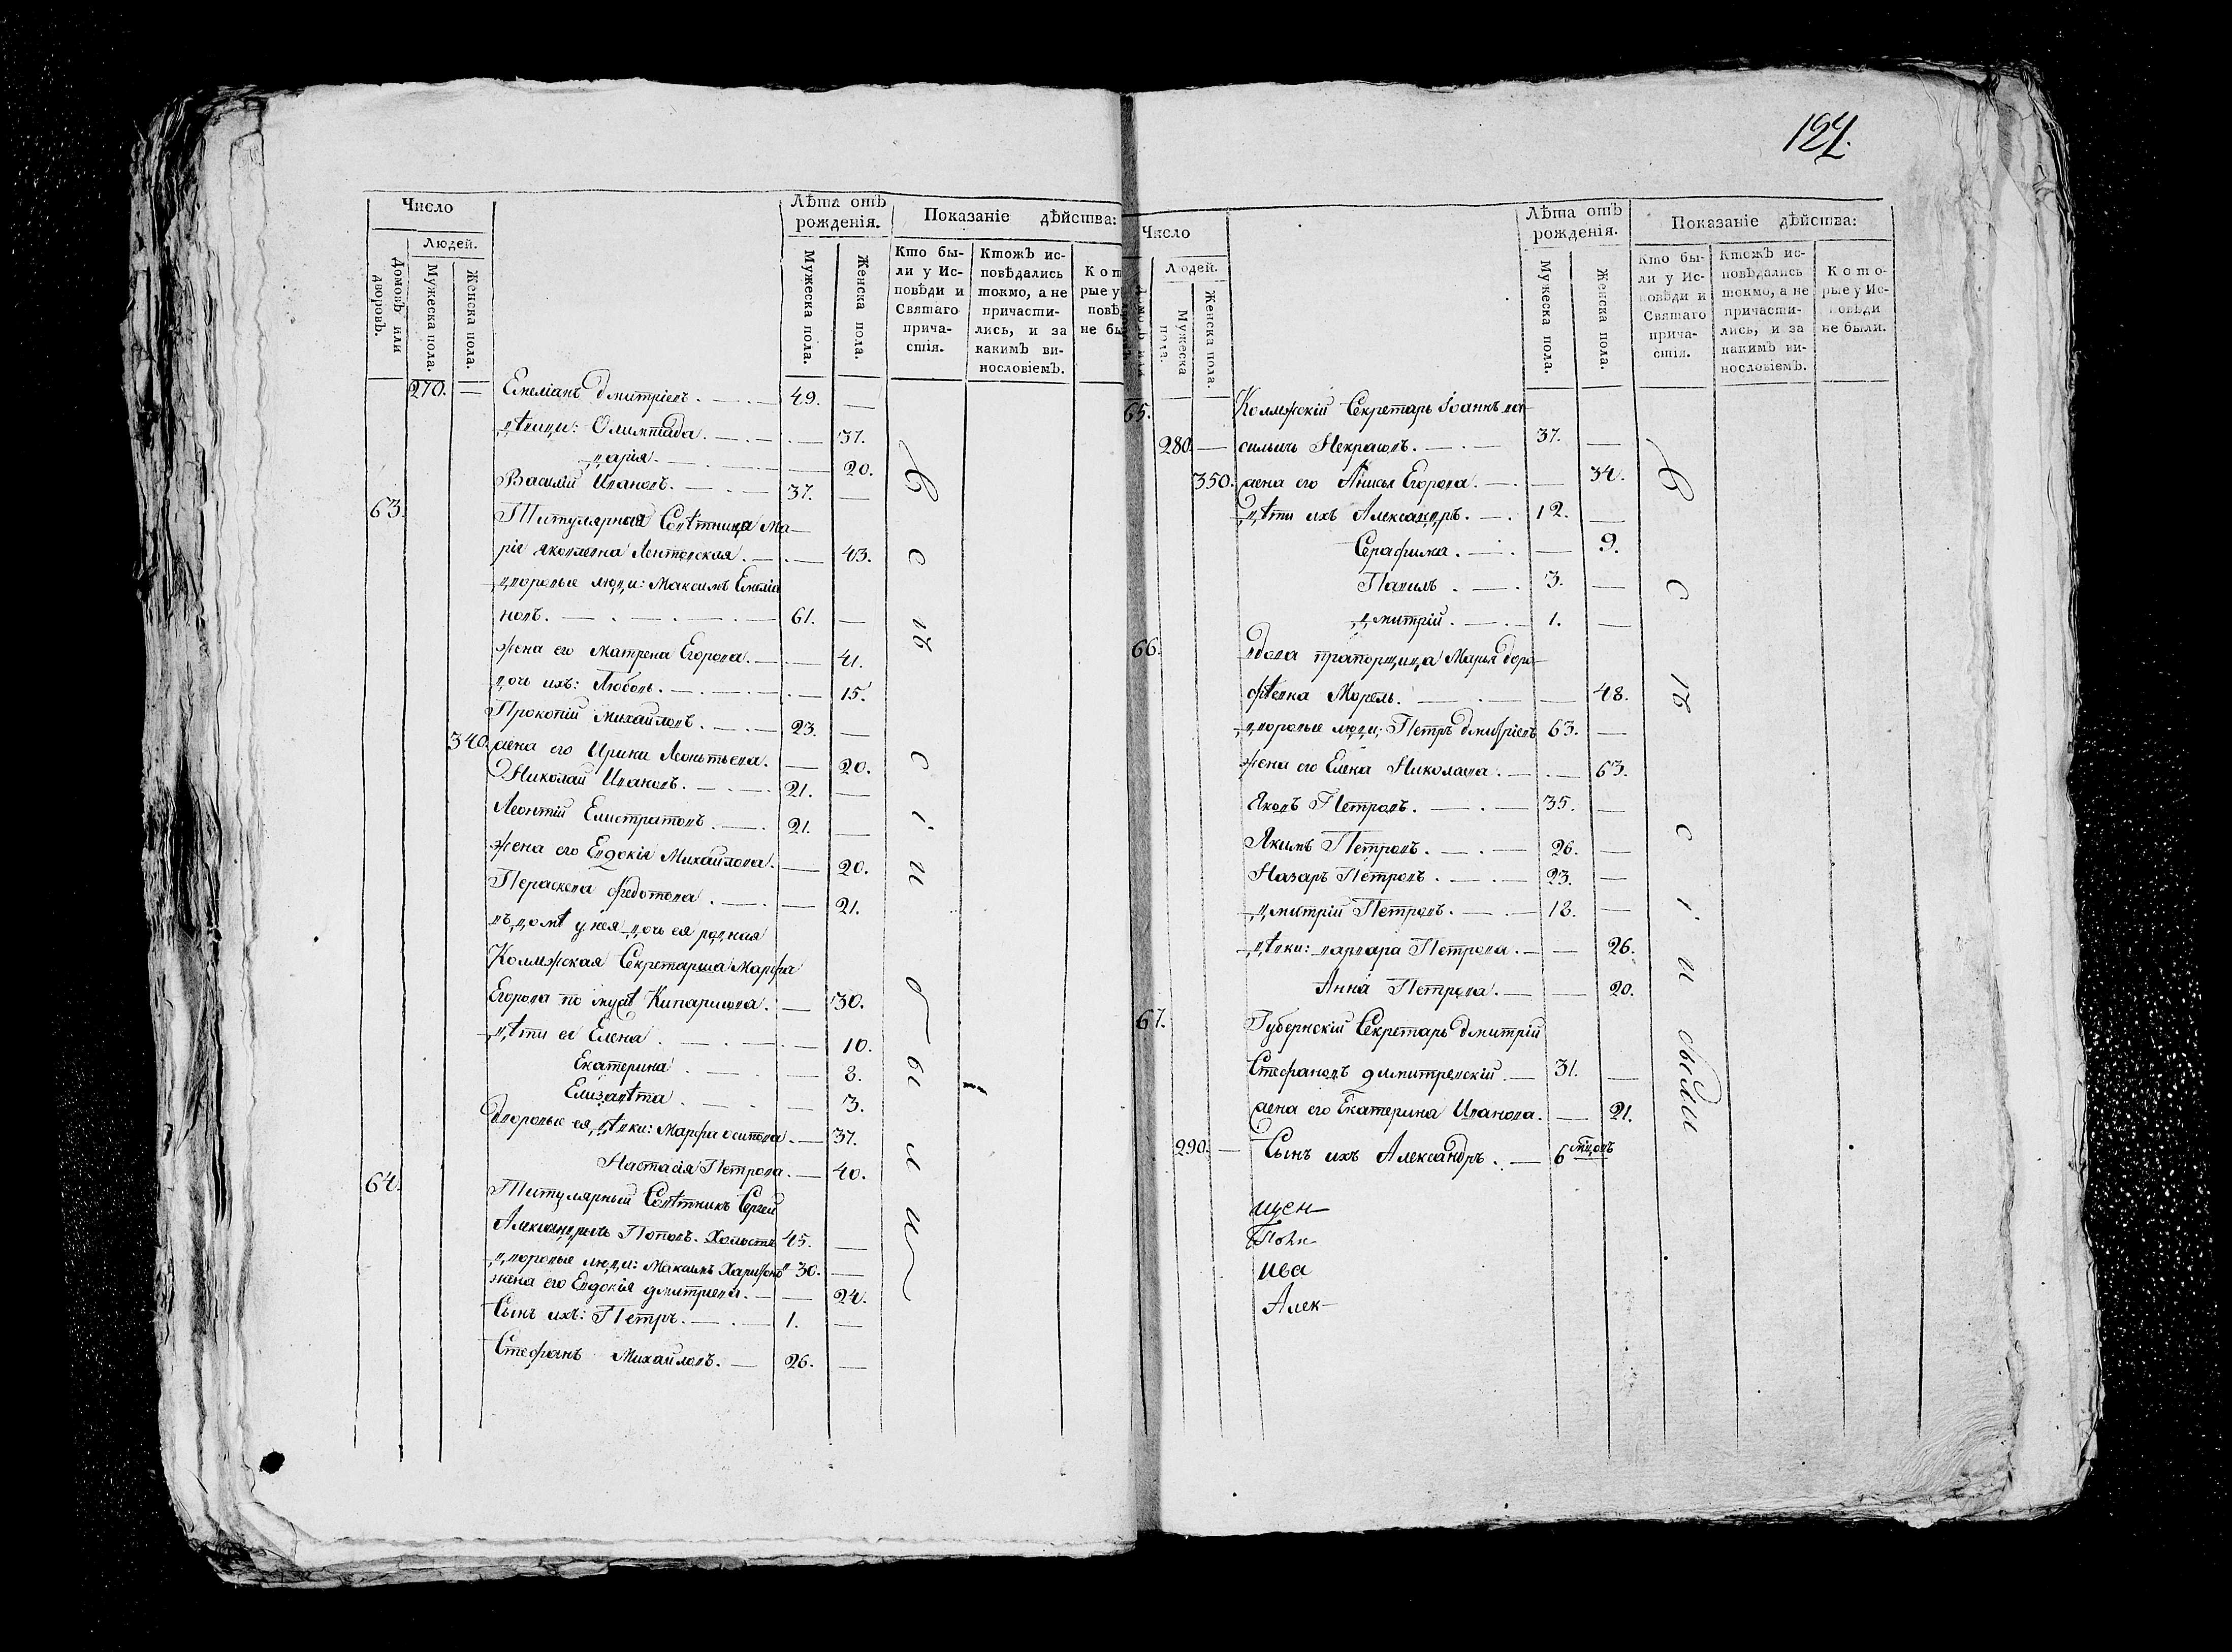 Число
Людей.
Домовъ или дворовъ.
Мужеска пола.
Женска пола.
Лѣта отъ рожденія.
Мужеска пола.
Женска пола.
Показаніе дѣйства:
Кто бы-
ли у Ис-
повѣди и
Святаго
прича-
стія.
Ктожъ ис-
повѣдались
токмо, а не
причасти-
лись, и за
какимъ ви-
нословіемъ.
Кот
рые у
повѣ
не бы
270. — Емеліанъ Дмитріевъ. — 49. —
дѣвици: Олимпиада. — 37.
Дарія. — 20.
Василій Ивановъ. — 37. —
63. Титулярная Совѣтница Ма-
рія Яковлевна — 43.
дворовые люди: Максимъ Емеліа
новъ. — 61. —
жена его Матрена Егорова. — 41.
дочь ихъ: Любовь. — 15.
Прокопій Михайловъ. — 23. —
340. жена его Ирина Леонтьева. — 20.
Николай Ивановъ. — 21. —
Леонтій Елистратовъ. — 21. —
жена его Евдокія Михайлова. — 20.
Параскева Федотова. — 21.
въ домѣ у нея дочь ея родная
Коллежская Секретарша Марфа
Егорова по мужѣ Кипарисова. — 30.
дѣти ее Елена. — 10.
Екатерина. — 8.
Елизавѣта. — 3.
Дворовые ея дѣвки: Марфа Осипова. — 37.
Настасія Петрова. — 40.
64. Титулярный Совѣтникъ Сергей
Александровичь Поповъ. Холостъ 45. —
дворовые люди: Максимъ Харитоновъ 30. —
жена его Евдокія Дмитріева. — 24.
Сынъ ихъ: Петръ. — 1. —
Стефанъ Михайловъ. — 26. —
в с ѣ с і и б ы л и
124.
Число
Людей.
Мужеска пола.
Женска пола.
Лѣта отъ рожденія.
Мужеска пола.
Женска пола.
Показаніе дѣйства:
Кто бы-
ли у Ис-
повѣди и
Святаго
прича-
стія.
Ктожъ ис-
повѣдались
токмо, а не
причасти-
лись, и за
какимъ ви-
нословіемъ.
Кото-
рые у Ис-
повѣди
не были.
65. Коллежскій Секретарь Іоаннъ Ва-
280. — сильичь Некрасовъ. — 37. —
350. жена его Анисья Егорова. — 34.
Дѣти ихъ Александръ. — 12. —
Серафима. — 9.
Павилъ. — 3. —
Дмитрій. — 1. —
66. Вдова прапорщица Марья Доро-
фѣевна Морель. — 48.
дворовые люди: Петръ Дмитріевъ 63. —
жена его Елена Николаева. — 63.
Яковъ Петровъ. — 35. —
Якимъ Петровъ. — 26. —
Назаръ Петровъ. — 23. —
Дмитрій Петровъ. — 18. —
дѣвки: Варвара Петрова. — 26.
Анна Петрова. — 20.
67. Губернскій Секретарь Дмитрій
Стефановъ Дмитревскій. — 31. —
жена его Екатерина Иванова. — 21.
290. — Сынъ ихъ Александръ. — 6 мѣсяцовъ
в с ѣ с і и были
щен-
ива
Алек-